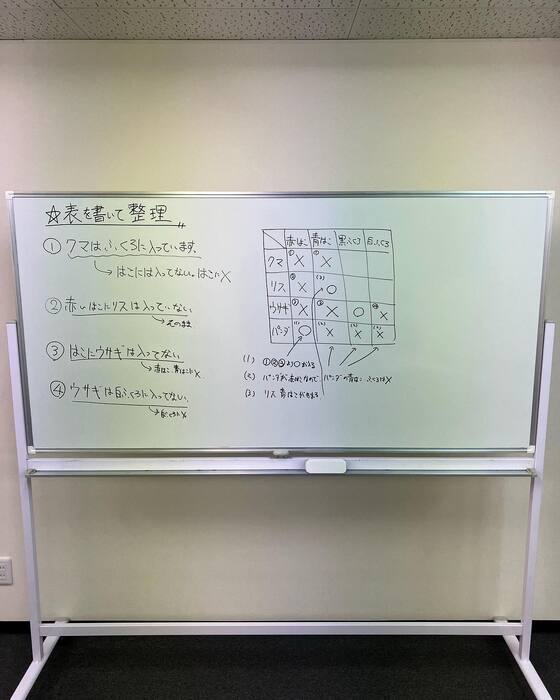 ☆表を書いて整理
① クマはふくろに入っています。
→ はこには入ってない。はこに×
② 赤いはこにリスは入っていない
→ そのまま
③ はこにウサギは入ってない
→ 赤はこ、青はこに×
④ ウサギは白ふくろに入ってない。
→ 白ぶくろに×
赤はこ 青はこ 黒ふくろ 白ふくろ
クマ ① × ① ×
リス ② × (3) ○
ウサギ ③ × ③ × ○ ④ ×
パンダ (1) ○ (2) × (2) × (2) ×
(1) ①②③より○が入る
(2) パンダが赤はこなので、パンダの青はこ、ふくろは×
(3) リス 青はこがきまる